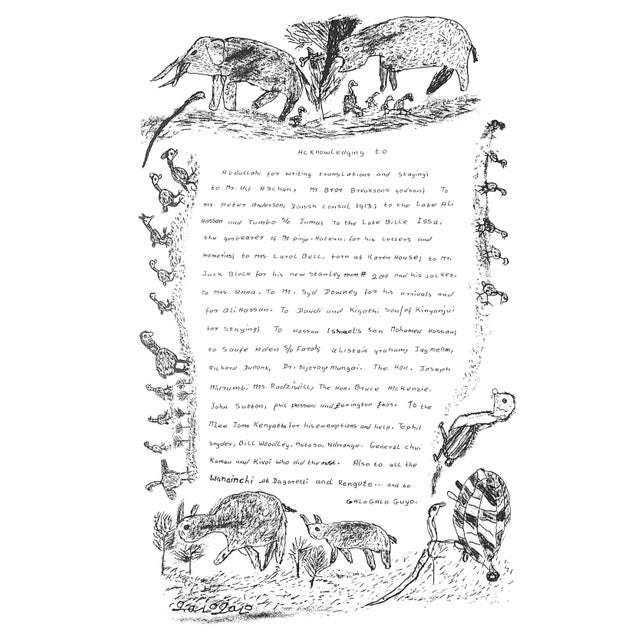 Acknowledging to
Abdullahi for writing translations and staying;
to Mr. Uli Aschan, Mr Bror Brexsons godson; To
Mr. Peter Anderson, Danish consul 1913; to the Late Ali
Hassan and Tumbo s/o Juma; To the Late Bille Issa,
the gunbearer of Mr. pinja-Hatern, for his Letters and
memories; to Mrs Carol Bell, born at Karen House; to Mr.
Jack Block for his new Stanley room # 208 and his jacket.
To Mrs Anna. To Mr. Syd Downey for his arrivals and
for Ali Hassan. To Daudi and Kigathi son/of Kinyanjui
for staying; To Hassan Ismael's son Mohamed Hassan;
to Saufe Aden s/o Farah; Alistair graham, Jay mellon,
Richard Dumons, Dr. Njoroge Mungai. The Hon. Joseph
Murumbi Mrs. Radziwill, The Hon. Bruce McKenzie.
John Sutton, phil personi and pennington fabs. To the
Mzee Jomo Kenyatta for his exemptions and help. To phil
snyder, Bill Woodley, Mutoso, Ndirangu. General chui
Kamau and Kivoi who did the most. Also to all the
Wananchi at Dagoretti and Rengute... and to
GALOGALO Guyo.
GaloGalo